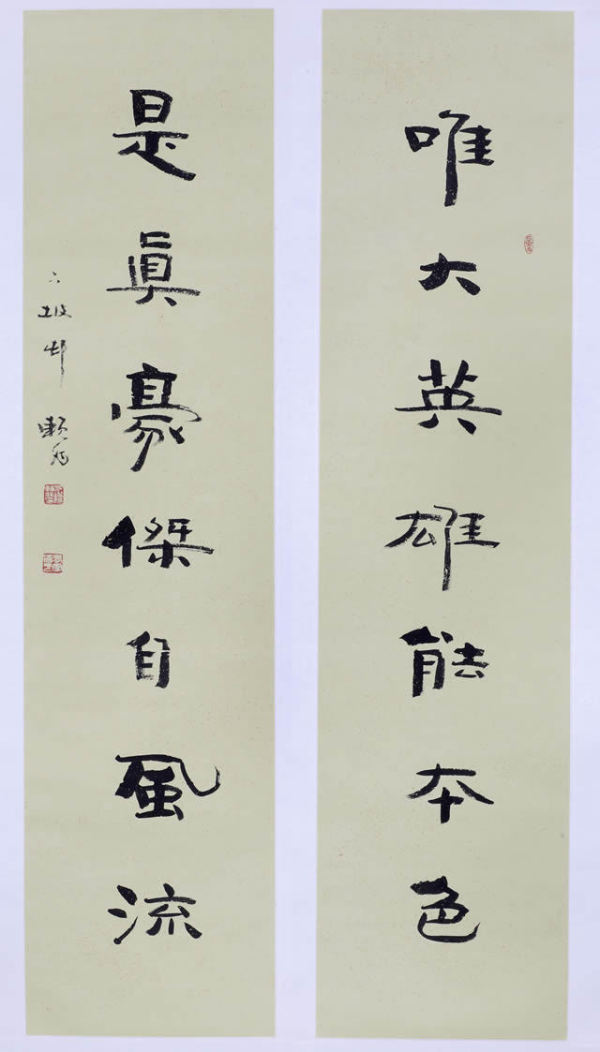 唯大英雄能本色
是眞豪傑自風流
坡邨